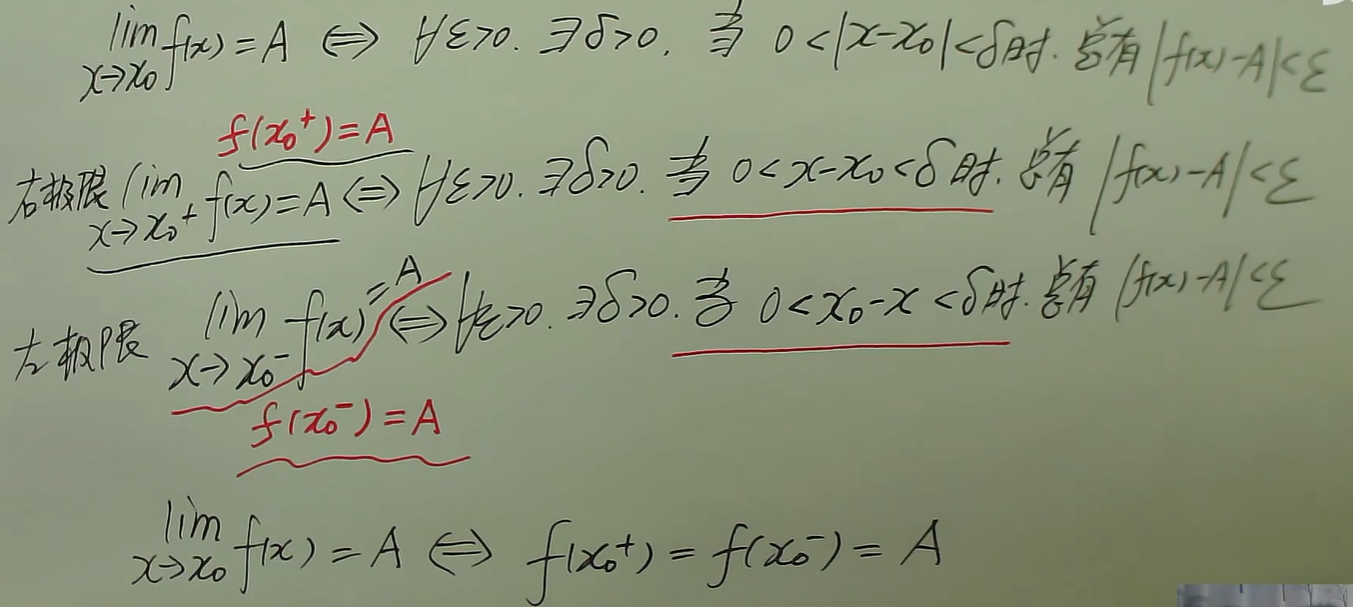 lim x→x₀ f(x) = A ⇔ ∀ε>0. ∃δ>0, 当 0<|x-x₀|<δ时. 总有|f(x)-A|<ε
f(x₀⁺)=A
右极限 lim x→x₀⁺ f(x)=A ⇔ ∀ε>0. ∃δ>0. 当 0<x-x₀<δ时. 总有 |f(x)-A|<ε
左极限 lim x→x₀⁻ f(x)=A ⇔ ∀ε>0. ∃δ>0. 当 0<x₀-x<δ时. 总有 |f(x)-A|<ε
f(x₀⁻)=A
lim x→x₀ f(x) = A ⇔ f(x₀⁺) = f(x₀⁻) = A